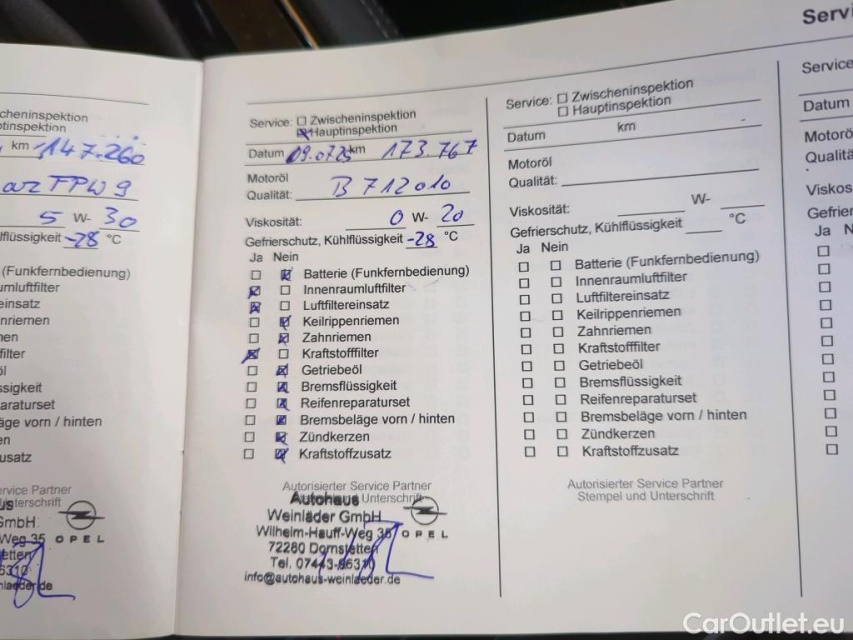 cheninspektion
ptinspektion
km 147.260
5 W- 30
lflüssigkeit -28 °C
(Funkfernbedienung)
umluftfilter
einsatz
nriemen
men
filter
öl
ssigkeit
araturset
äge vorn / hinten
en
usatz
rvice Partner
Unterschrift
us
GmbH
Weg 35
OPEL
Service: Zwischeninspektion
Hauptinspektion
Datum 09.07.25 km 173.767
Motoröl
Qualität: B 712010
Viskosität: 0 W- 20
Gefrierschutz, Kühlflüssigkeit -28 °C
Ja Nein
Batterie (Funkfernbedienung)
Innenraumluftfilter
Luftfiltereinsatz
Keilrippenriemen
Zahnriemen
Kraftstofffilter
Getriebeöl
Bremsflüssigkeit
Reifenreparaturset
Bremsbeläge vorn / hinten
Zündkerzen
Kraftstoffzusatz
Autorisierter Service Partner
Unterschrift
Autohaus
Weinläder GmbH
Wilhelm-Hauff-Weg 35
OPEL
72280 Dornstetten
Tel. 07443-96310
info@autohaus-weinlaeder.de
Service: Zwischeninspektion
Hauptinspektion
Datum km
Motoröl
Qualität:
Viskosität: W-
Gefrierschutz, Kühlflüssigkeit °C
Ja Nein
Batterie (Funkfernbedienung)
Innenraumluftfilter
Luftfiltereinsatz
Keilrippenriemen
Zahnriemen
Kraftstofffilter
Getriebeöl
Bremsflüssigkeit
Reifenreparaturset
Bremsbeläge vorn / hinten
Zündkerzen
Kraftstoffzusatz
Autorisierter Service Partner
Stempel und Unterschrift
Servi
Service
Datum
Motorö
Qualitä
Viskos
Gefrier
Ja N
CarOutlet.eu